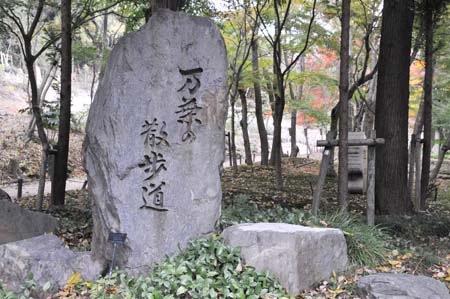 万葉の
散歩道